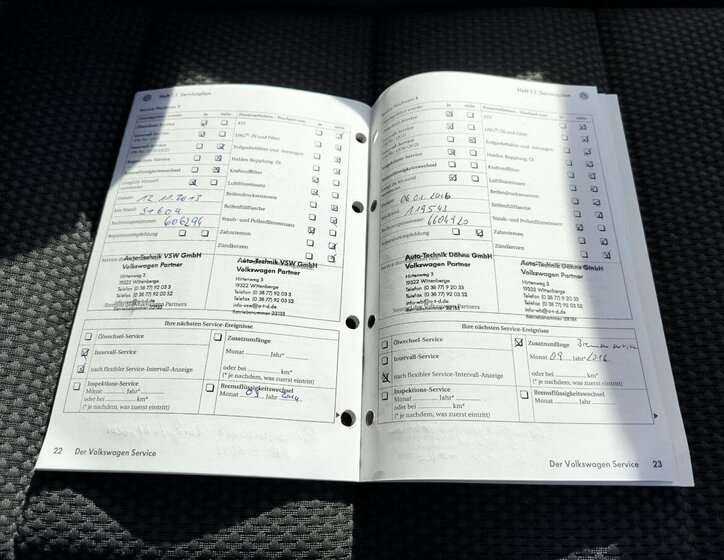 Heft 1.1 Serviceplan
Service-Nachweis 3
Durchgeführt wurde: ja nein Zusatzarbeiten - Wechsel von: ja nein
Ölwechsel-Service ATF
Intervall-Service DSG® Öl und Filter
Intervall-Service Erdgasbehälter und -leitungen
Inspektions-Service Haldex Kupplung: Öl
Bremsflüssigkeitswechsel Kraftstofffilter
LongLife Motoröl verwendet: Luftfiltereinsatz
Datum: 12.11.2013 Reifendrucksensoren
km-Stand: 51604 Reifenfüllflasche
Rechnungsnummer: 606294 Staub- und Pollenfiltereinsatz
Reparaturempfehlung Zahnriemen
Zündkerzen
Auto-Technik VSW GmbH
Volkswagen Partner
Hirtenweg 3
19322 Wittenberge
Telefon (0 38 77) 92 03 3
Telefax (0 38 77) 92 03 52
Auto-Technik VSW GmbH
Volkswagen Partner
Hirtenweg 3
19322 Wittenberge
Telefon (0 38 77) 92 03 3
Telefax (0 38 77) 92 03 52
info-vsw@a-t-d.de
Betriebsnummer 22133
Ihre nächsten Service-Ereignisse
Ölwechsel-Service Zusatzumfänge
Intervall-Service Monat Jahr*
nach flexibler Service-Intervall-Anzeige oder bei km*
(* je nachdem, was zuerst eintritt)
Inspektions-Service Bremsflüssigkeitswechsel
Monat Jahr* Monat 09 Jahr 2014
oder bei km*
(* je nachdem, was zuerst eintritt)
22 Der Volkswagen Service
Heft 1.1 Serviceplan
Nachweis 4
wurde: ja nein Zusatzarbeiten - Wechsel von: ja nein
Service ATF
Service DSG® Öl und Filter
Intervall-Service Erdgasbehälter und -leitungen
Inspektions-Service Haldex Kupplung: Öl
Bremsflüssigkeitswechsel Kraftstofffilter
LongLife Motoröl Luftfiltereinsatz
06.01.2016 Reifendrucksensoren
119543 Reifenfüllflasche
Rechnungsnummer: 6604920 Staub- und Pollenfiltereinsatz
Reparaturempfehlung Zahnriemen
Zündkerzen
Auto-Technik Dähne GmbH
Volkswagen Partner
Hirtenweg 3
19322 Wittenberge
Telefon (0 38 77) 9 20 33
Telefax (0 38 77) 92 03 52
Auto-Technik Dähne GmbH
Volkswagen Partner
Hirtenweg 3
19322 Wittenberge
Telefon (0 38 77) 9 20 33
Telefax (0 38 77) 92 03 52
Betriebsnummer 22133
Ihre nächsten Service-Ereignisse
Ölwechsel-Service Zusatzumfänge
Intervall-Service Monat 09 Jahr* 2016
nach flexibler Service-Intervall-Anzeige oder bei km*
(* je nachdem, was zuerst eintritt)
Inspektions-Service Bremsflüssigkeitswechsel
Monat Jahr* Monat Jahr
oder bei km*
(* je nachdem, was zuerst eintritt)
Der Volkswagen Service 23